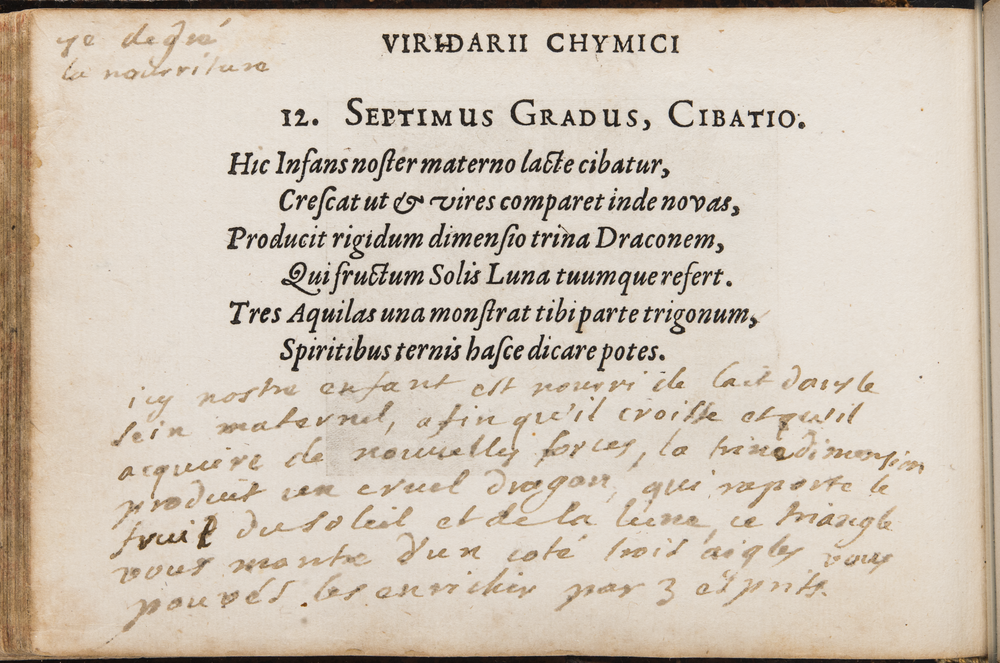 7e degré
la nourriture
VIRIDARII CHYMICI
12. SEPTIMUS GRADUS, CIBATIO.
Hic Infans noſter materno lacte cibatur,
Creſcat ut & vires comparet inde novas,
Producit rigidum dimenſio trina Draconem,
Qui fructum Solis Luna tuumque refert.
Tres Aquilas una monſtrat tibi parte trigonum,
Spiritibus ternis haſce dicare potes.
icy nostre enfant est nourri de lait dans le
sein maternel, afin qu'il croisse et qu'il
acquiere de nouvelles forces, la trine dimension
produit un cruel dragon, qui raporte le
fruit du soleil et de la lune, ce triangle
vous montre d'un coté trois aigles vous
pouvés les enrichir par 3 esprits.